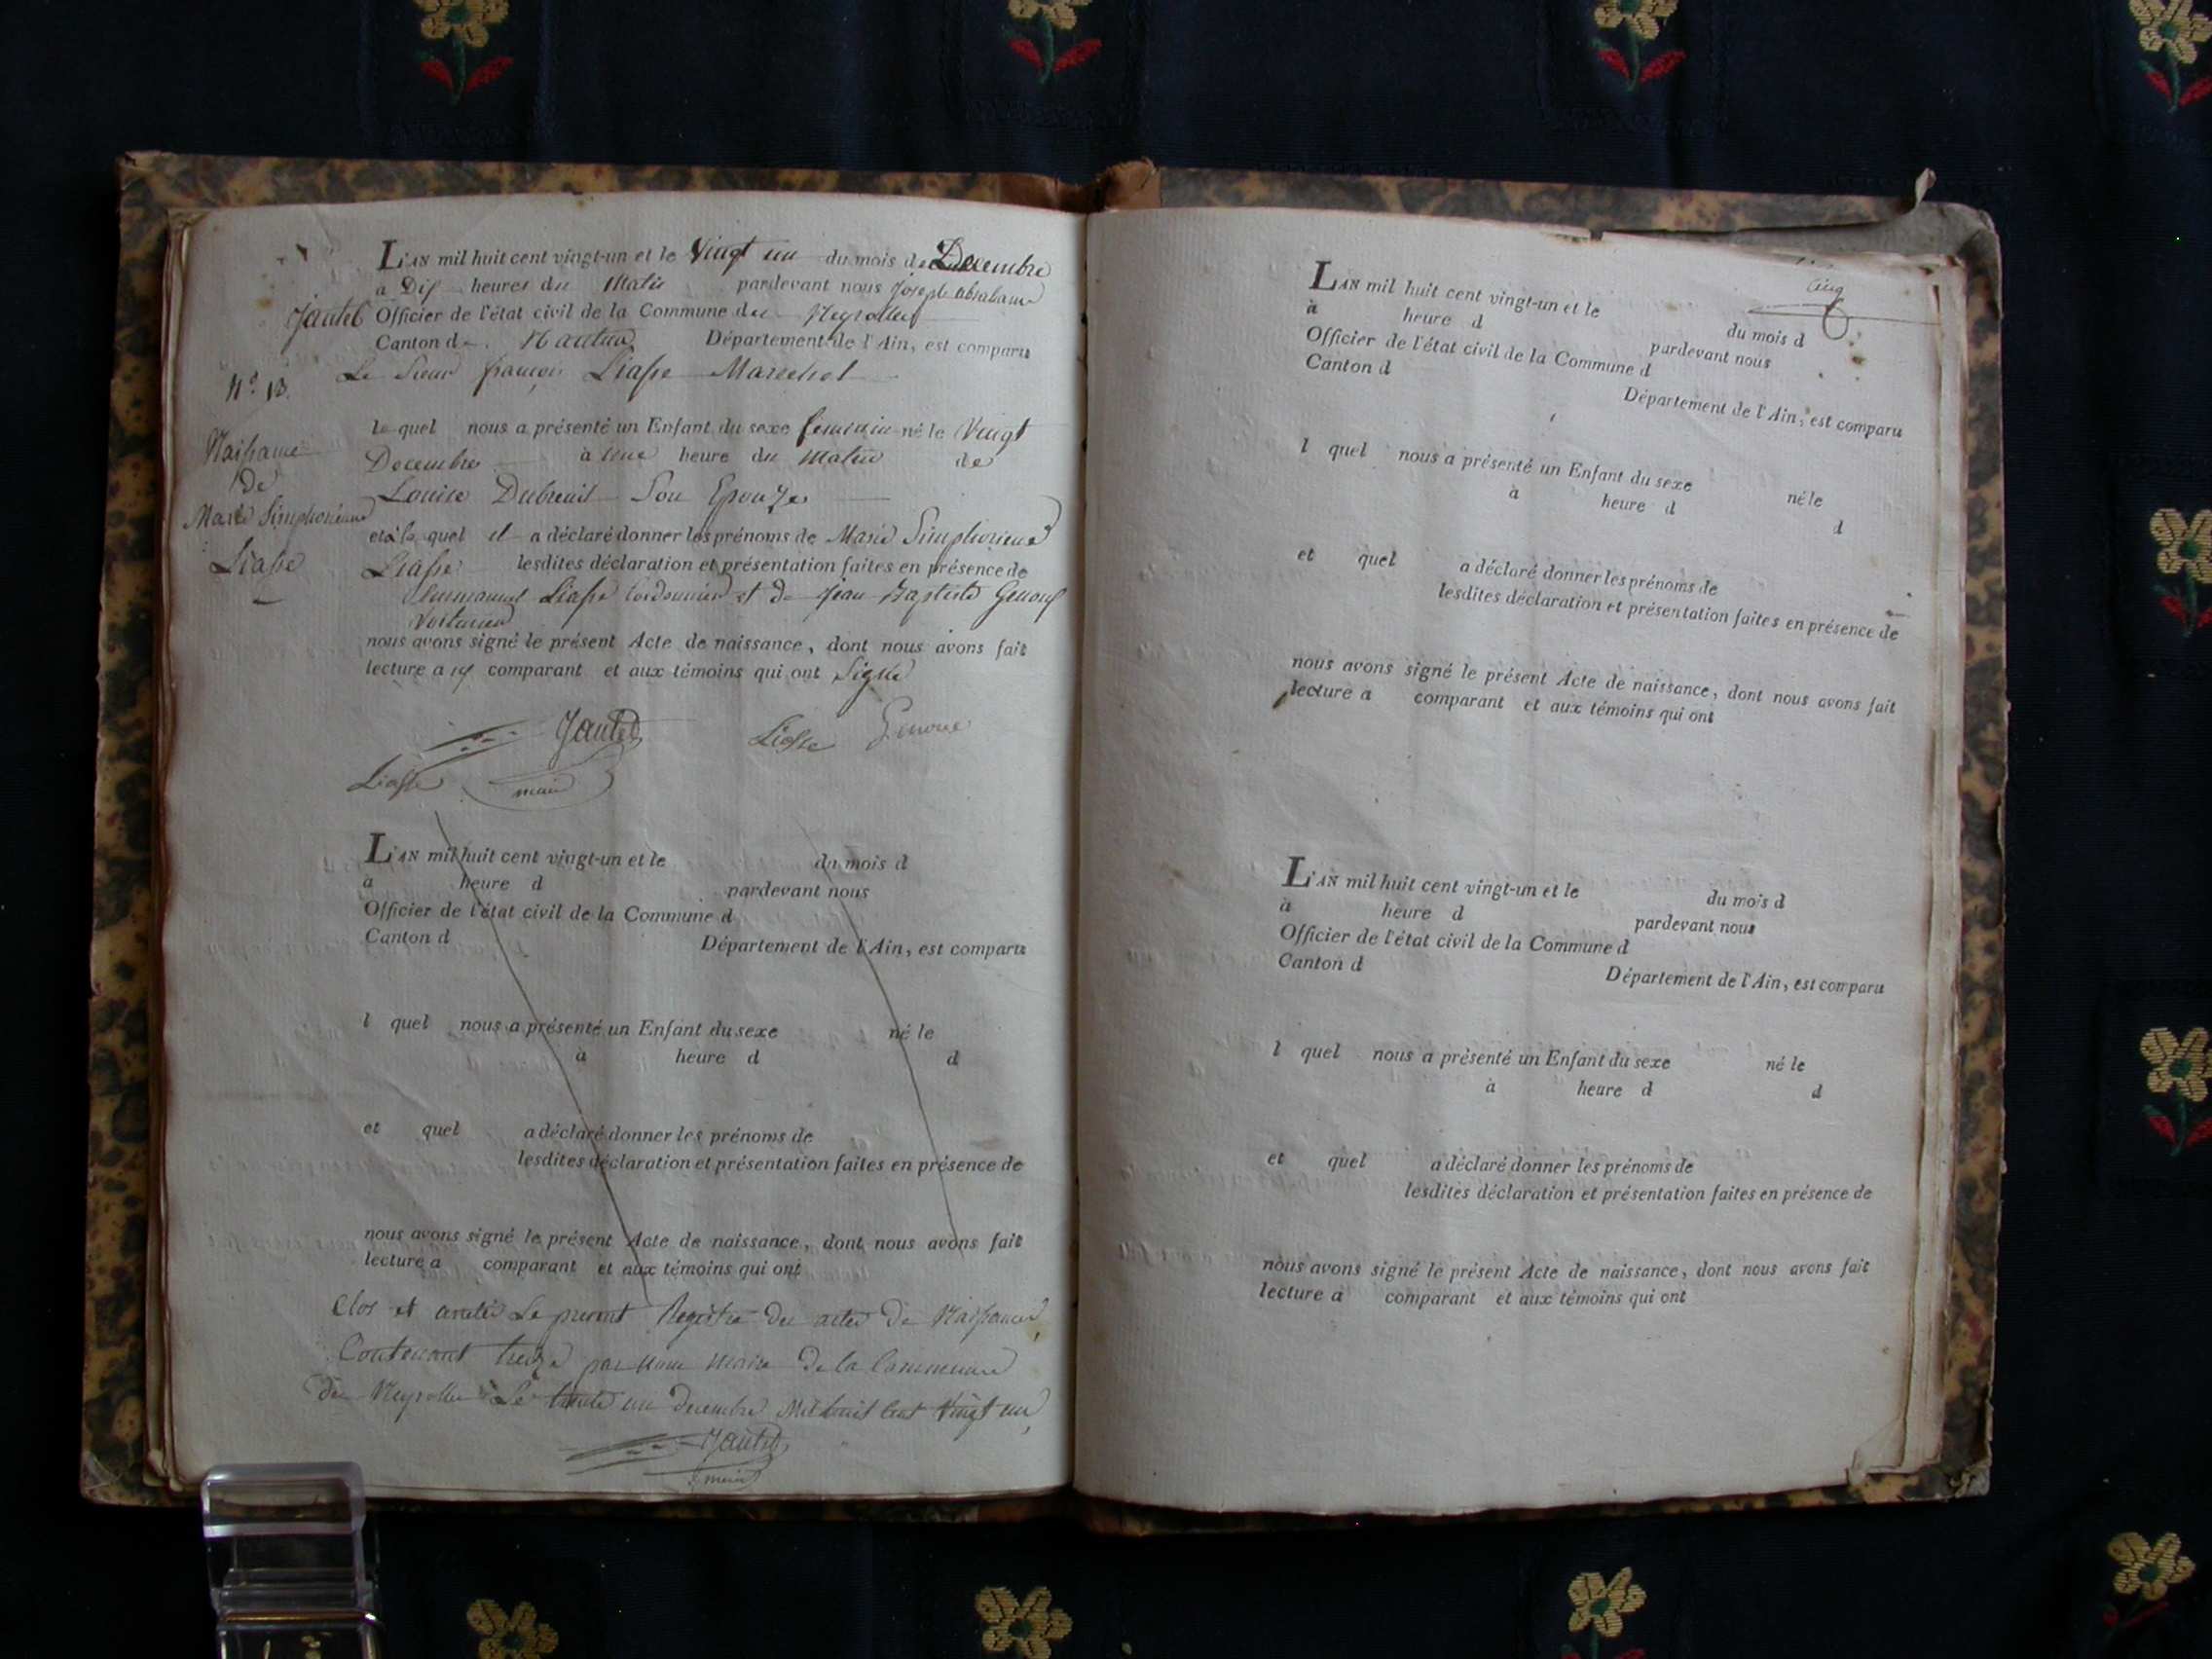 L'AN mil huit cent vingt-un et le Vingt un du mois de Decembre
a Dix heures du Matin pardevant nous Joseph abraham
Jantet Officier de l'état civil de la Commune des Neyrolles
Canton de Nantua Département de l'Ain, est comparu
Le Sieur françois Liasse Marechal
N.º 13.
le quel nous a présenté un Enfant du sexe feminin né le Vingt
Decembre à une heure du Matin de
Louise Dubreuil Son Epouze
Naissance
de
Marie Simphorienne
Liasse
et à la quel il a déclaré donner les prénoms de Marie Simphorienne
Liasse lesdites déclaration et présentation faites en présence de
Emmanuel Liasse Cordonnier et de Jean Baptiste
Voiturier
nous avons signé le présent Acte de naissance, dont nous avons fait
lecture a comparant et aux témoins qui ont Signé
Jantet Liasse
Liasse maire
L'AN mil huit cent vingt-un et le du mois d
à heure d pardevant nous
Officier de l'état civil de la Commune d
Canton d Département de l'Ain, est comparu
l quel nous a présenté un Enfant du sexe né le
à heure d d
et quel a déclaré donner les prénoms de
lesdites déclaration et présentation faites en présence de
nous avons signé le présent Acte de naissance, dont nous avons fait
lecture a comparant et aux témoins qui ont
Clos et areté Le present Registre des actes de Naissances
Contenant treize par nous Maire de la Commune
des Neyrolles Le trente un decembre Mil huit Cent Vingt un,
Jantet
maire
L'AN mil huit cent vingt-un et le du mois d
à heure d pardevant nous
Officier de l'état civil de la Commune d
Canton d Département de l'Ain, est comparu
l quel nous a présenté un Enfant du sexe né le
à heure d d
et quel a déclaré donner les prénoms de
lesdites déclaration et présentation faites en présence de
nous avons signé le présent Acte de naissance, dont nous avons fait
lecture a comparant et aux témoins qui ont
L'AN mil huit cent vingt-un et le du mois d
à heure d pardevant nous
Officier de l'état civil de la Commune d
Canton d Département de l'Ain, est comparu
l quel nous a présenté un Enfant du sexe né le
à heure d d
et quel a déclaré donner les prénoms de
lesdites déclaration et présentation faites en présence de
nous avons signé le présent Acte de naissance, dont nous avons fait
lecture a comparant et aux témoins qui ont